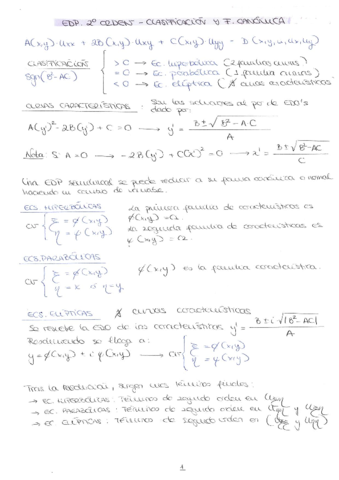 EDP. 2º ORDEN - CLASIFICACIÓN Y F. CANÓNICA
A(x,y)·Uxx + 2B(x,y) Uxy + C(x,y)·Uyy = D(x,y,u,ux,uy)
CLASIFICACIÓN Sgn(B²-AC)
> 0 → Ec. hiperbólica (2 familias curvas)
= 0 → Ec. parabólica (1 familia curvas)
< 0 → Ec. elíptica (∄ curvas características)
CURVAS CARACTERÍSTICAS: Son las soluciones al par de EDO's dado por:
A(y')² - 2B(y') + C = 0 → y' = (B ± √(B² - AC)) / A
Nota: Si A=0 → -2B(y') + C(x')² = 0 → x' = (B ± √(B² - AC)) / C
Una EDP se puede reducir a su forma canónica o normal
haciendo un cambio de variable.
ECS. HIPERBÓLICAS
CV { ξ = φ(x,y)
η = ψ(x,y)
La primera familia de características es
φ(x,y) = Cte.
La segunda familia de características es
ψ(x,y) = Cte.
ECS. PARABÓLICAS
CV { ξ = φ(x,y)
η = x ó η = y.
φ(x,y) es la familia característica.
ECS. ELÍPTICAS ∄ curvas características
Se resuelve la EDO de las características y' = (B ± i √|B² - AC|) / A
Resolviendo se llega a:
y = φ(x,y) + i ψ(x,y) → CV { ξ = φ(x,y)
η = ψ(x,y)
Tras la reducción, surgen unos términos finales:
→ EC. HIPERBÓLICAS: Términos de segundo orden en Uξη
→ EC. PARABÓLICAS: Términos de segundo orden en Uηη y Uξξ
→ EC. ELÍPTICAS: Términos de segundo orden en (Uξξ y Uηη)
1